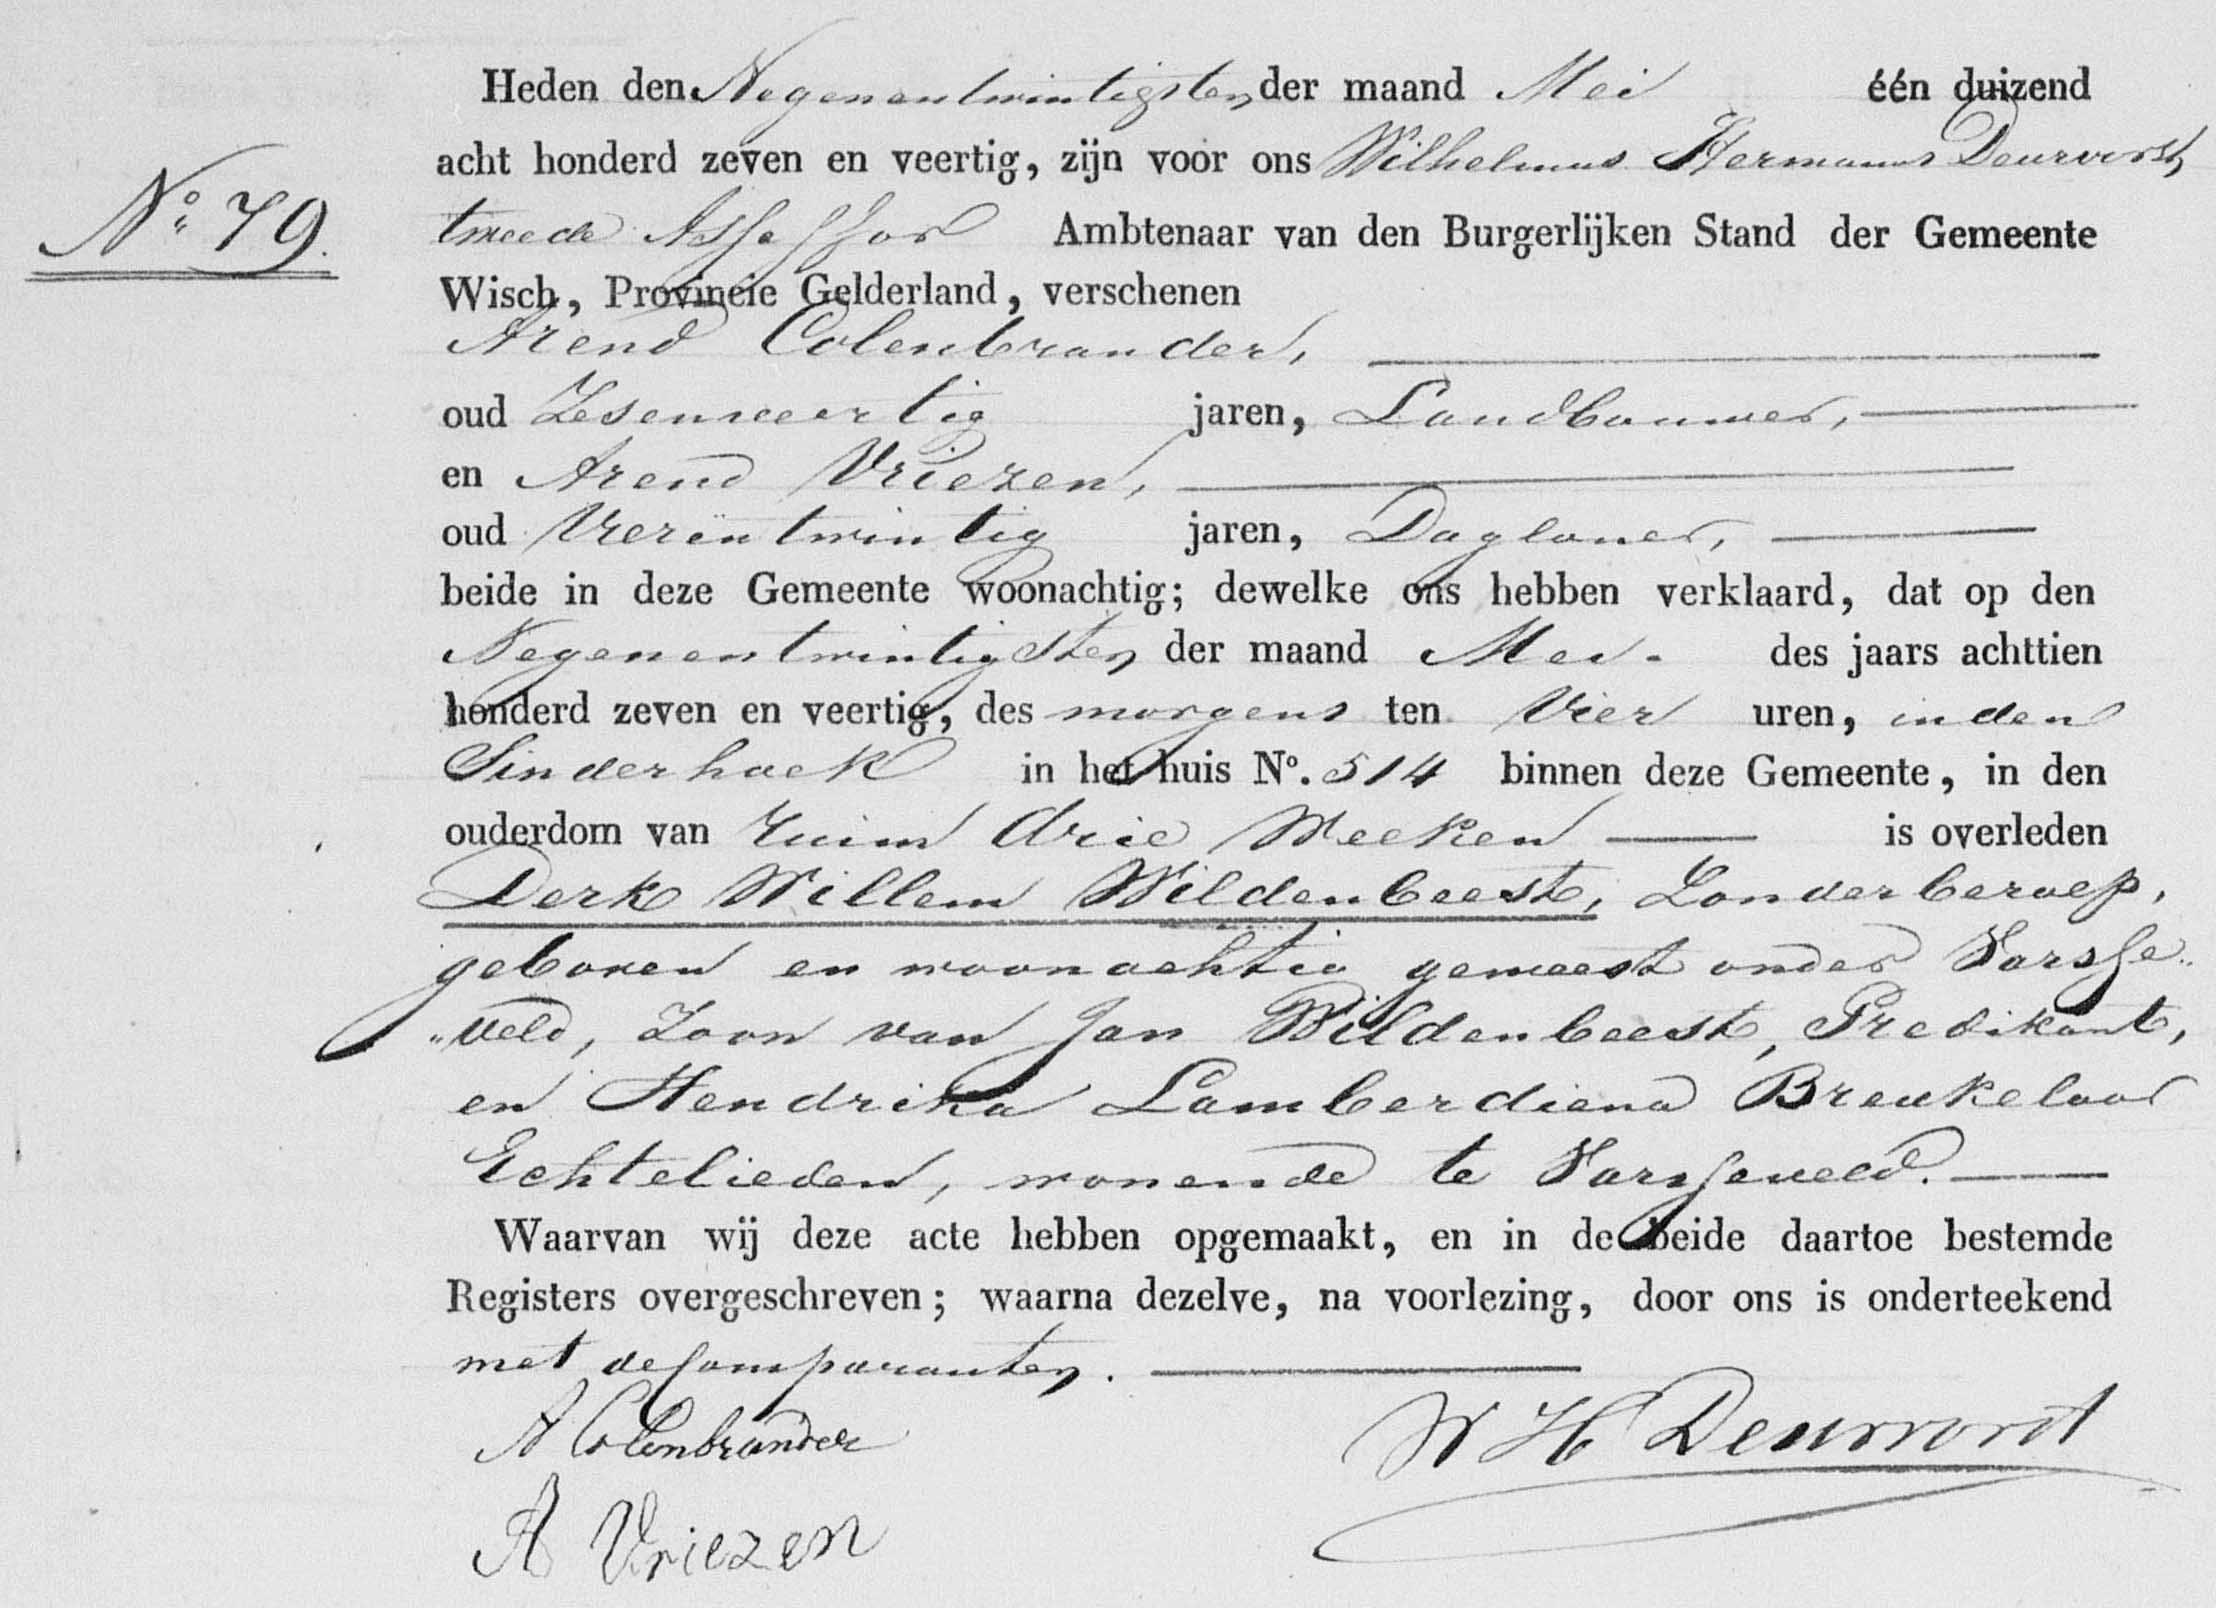 Heden den Negenentwintigsten der maand Mei één duizend
acht honderd zeven en veertig, zijn voor ons Wilhelmus Hermanus Deurvorst,
N° 79.
tweede Assessor Ambtenaar van den Burgerlijken Stand der Gemeente
Wisch, Provincie Gelderland, verschenen
Arend Colenbrander,
oud Zesenveertig jaren, Landbouwer,
en Arend Vriezen,
oud Vierentwintig jaren, Daglooner,
beide in deze Gemeente woonachtig; dewelke ons hebben verklaard, dat op den
Negenentwintigsten der maand Mei des jaars achttien
honderd zeven en veertig, des morgens ten Vier uren, in den
Sinderhoek in het huis N°. 514 binnen deze Gemeente, in den
ouderdom van ruim drie Weeken is overleden
Derk Willem Wildenbeest, Zonder beroep,
geboren en woonachtig geweest onder Varsse„
„veld, Zoon van Jan Wildenbeest, Predikant,
en Hendrika Lamberdiena Breukelaar
Echtelieden, wonende te Varsseveld.
Waarvan wij deze acte hebben opgemaakt, en in de beide daartoe bestemde
Registers overgeschreven; waarna dezelve, na voorlezing, door ons is onderteekend
met de Comparanten.
A Colenbrander
W H Deurvorst
A Vriezen